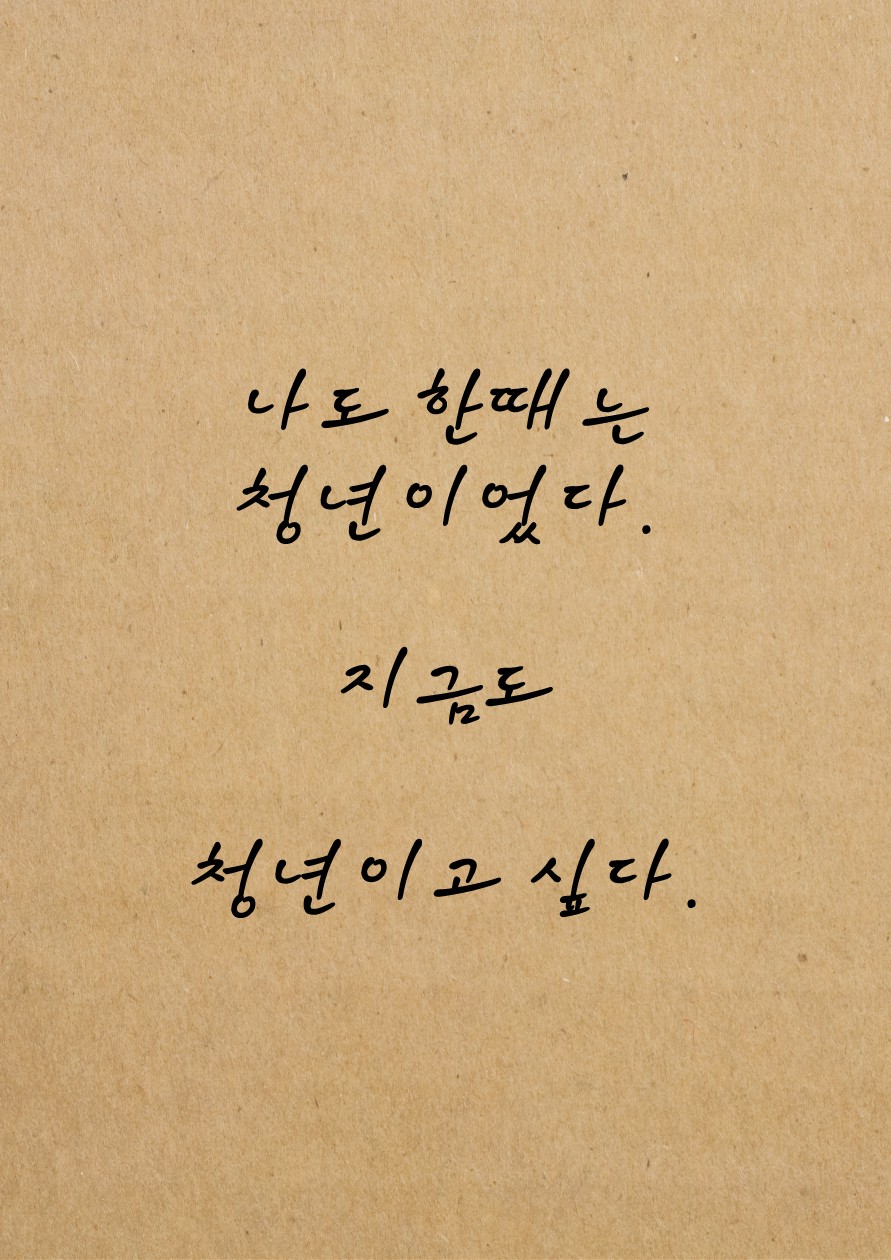 나도 한때는
청년이었다.
지금도
청년이고 싶다.